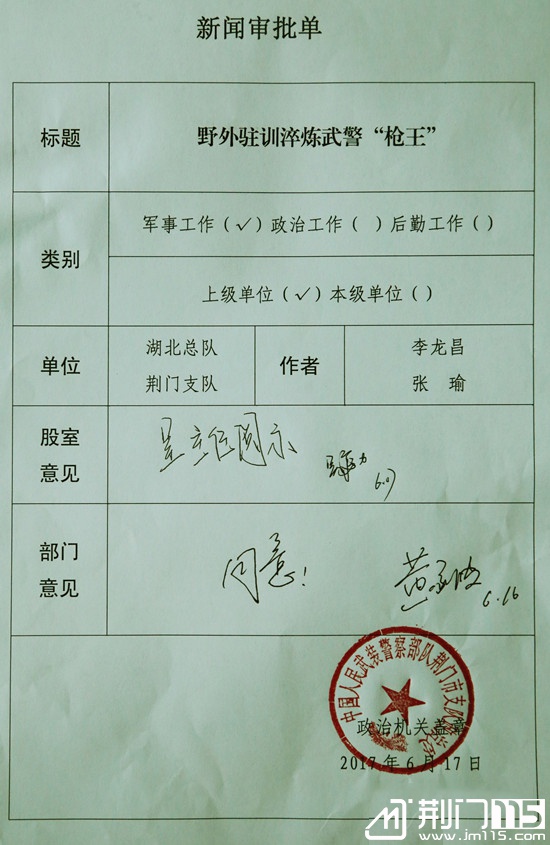 新闻审批单
标题
野外驻训淬炼武警“枪王”
类别
军事工作(✓)政治工作( )后勤工作()
上级单位(✓)本级单位()
单位
湖北总队
荆门支队
作者
李龙昌
张 瑜
股室
意见
呈主任阅示
部门
意见
同意!
6.16
中国人民武装警察部队荆门市支队
政治机关盖章
2017年6月17日
荆门115
www.jm115.com